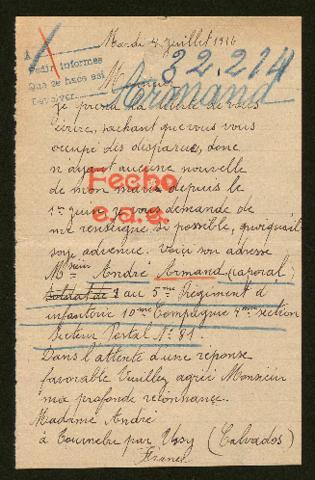 Mardi 4 Juillet 1916
A
Pedir informes
Que se hace asi
Devolver
32.214
Armand
Monsieur
Je prend la liberté de vous
écrire, sachant que vous vous
occupé des disparue, donc
n'ayant aucune nouvelle
de mon mari depuis le
1er juin je vous demande de
me renseigné si possible,
soye advenue. Voici son adresse
Fecho
e.a.g.
Msieur André Armand (caporal)
soldat de 2 au 5me Régiment d
infanterie 10me Compagnie 4me section
Secteur Postal No 81.
Dans l'attente d'une reponse
favorable Veuillez agréé Monsieur
ma profonde reconnance.
Madame André
à Tournebu par Ussy (Calvados)
France